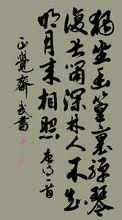 獨坐幽篁裏彈琴
復長嘯深林人不知
明月来相照 唐诗一首
正覺齋